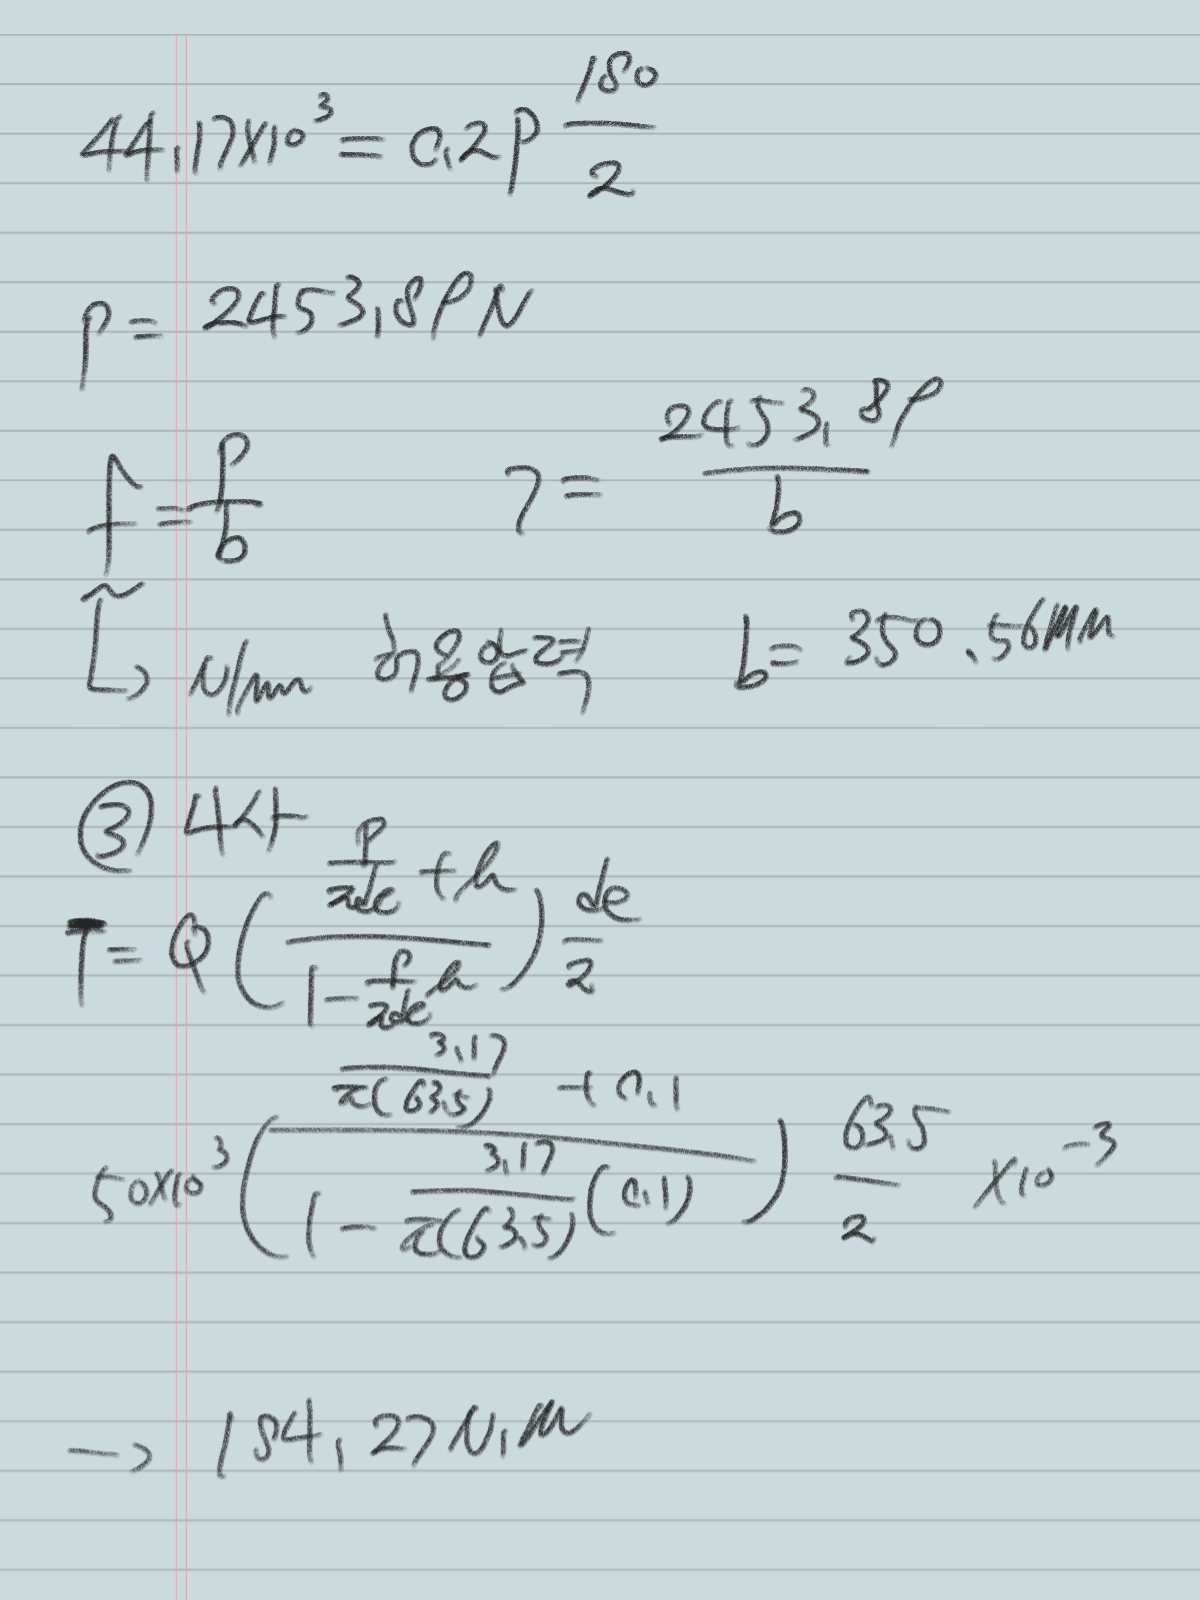 44.17×10³ = 0.2P 180/2
P = 2453.89N
f = P/b 7 = 2453.89/b
↳ N/mm 허용압력 b = 350.56mm
③ 나사
T = Q ( (P/πde + μ) / (1 - P/πde μ) ) de/2
50×10³ ( (3.17/π(63.5) + 0.1) / (1 - 3.17/π(63.5) (0.1)) ) 63.5/2 ×10⁻³
→ 184.27 N.m